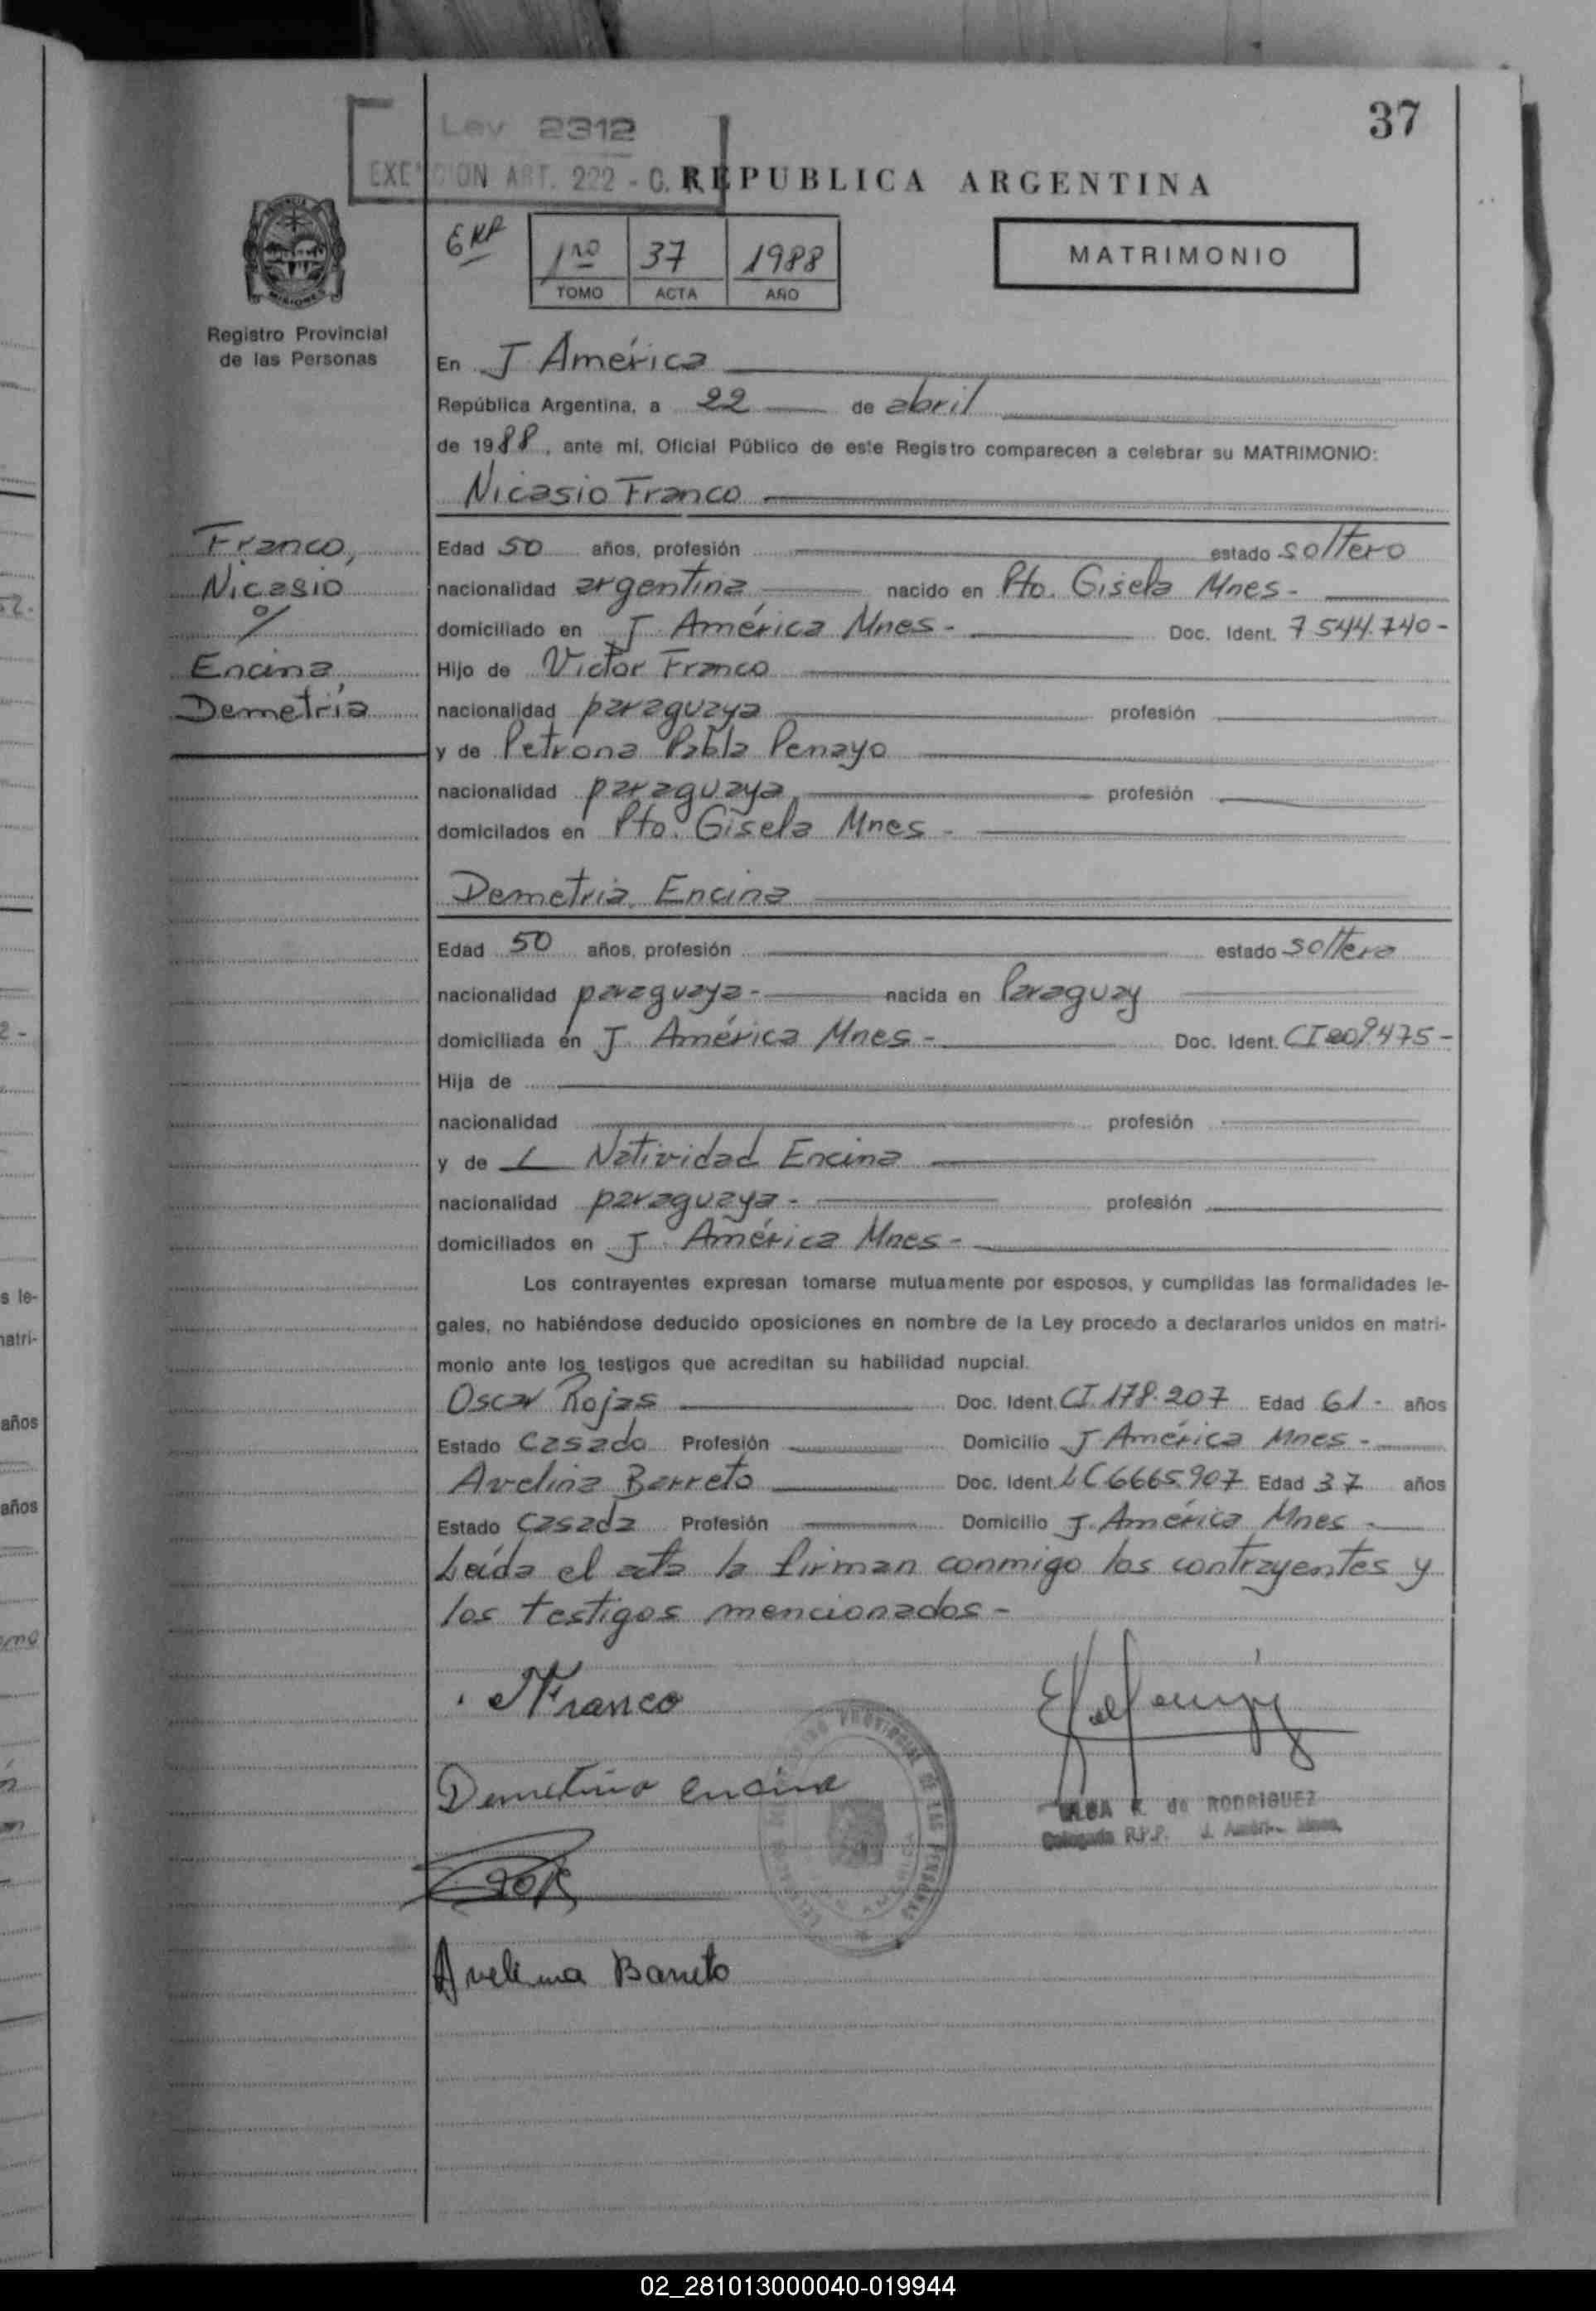 37
Ley 2312
EXENCION ART. 222 - C.
REPUBLICA ARGENTINA
1ro 37 1988
TOMO ACTA AÑO
MATRIMONIO
MISIONES
Registro Provincial
de las Personas
En J. América
República Argentina, a 22 de abril
de 1988, ante mí, Oficial Público de este Registro comparecen a celebrar su MATRIMONIO:
Nicasio Franco
Franco,
Nicasio
%
Encina,
Demetria
Edad 50 años, profesión estado soltero
nacionalidad argentina, nacido en Pto. Gisela Mnes-
domiciliado en J. América Mnes- Doc. Ident. 7544.740-
Hijo de Victor Franco
nacionalidad paraguaya profesión
y de Petrona Pabla Penayo
nacionalidad paraguaya profesión
domicilados en Pto. Gisela Mnes-
Demetria Encina
Edad 50 años, profesión estado soltera
nacionalidad paraguaya- nacida en Paraguay
domiciliada en J. América Mnes- Doc. Ident. CI 209.475-
Hija de
nacionalidad profesión
y de Natividad Encina
nacionalidad paraguaya- profesión
domiciliados en J. América Mnes-
Los contrayentes expresan tomarse mutuamente por esposos, y cumplidas las formalidades le-
gales, no habiéndose deducido oposiciones en nombre de la Ley procedo a declararlos unidos en matri-
monio ante los testigos que acreditan su habilidad nupcial.
Oscar Rojas Doc. Ident. CI. 178.207 Edad 61- años
Estado casado Profesión Domicilio J. América Mnes-
Avelina Barreto Doc. Ident. LC 6665.907 Edad 37 años
Estado casada Profesión Domicilio J. América Mnes-
Leída el acta la firman conmigo los contrayentes y
los testigos mencionados-
NFranco
Demetria encina
REGISTRO PROVINCIAL DE LAS PERSONAS
K. de RODRIGUEZ
Delegada R.P.P. J. América Mnes.
Avelina Barreto
02_281013000040-019944